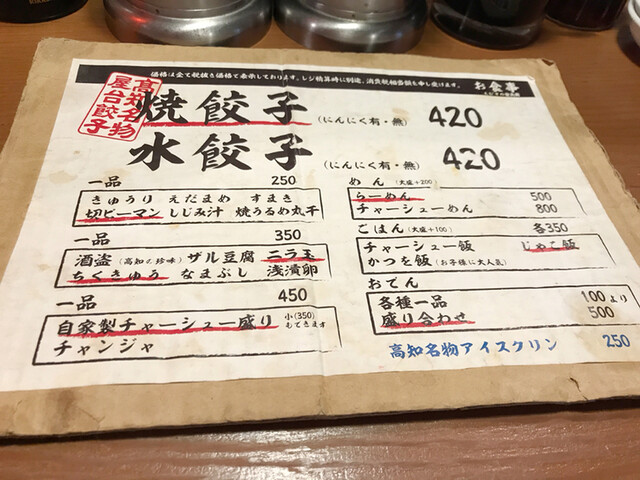 価格は全て税抜き価格で表示しております。レジ精算時に別途、消費税相当額を申し受けます。
お食事
高知名物
屋台餃子
焼餃子 (にんにく有・無) 420
水餃子 (にんにく有・無) 420
一品 250
きゅうり えだまめ すまき
切ピーマン しじみ汁 焼うるめ丸干
一品 350
酒盗(高知の珍味) ザル豆腐 ニラ玉
ちくきゅう なまぶし 浅漬卵
一品 450
自家製チャーシュー盛り 小(350)もできます
チャンジャ
めん (大盛+200)
らーめん 500
チャーシューめん 800
ごはん (大盛+100) 各350
チャーシュー飯 じゃこ飯
かつを飯 (お子様に大人気)
おでん
各種一品 100より
盛り合わせ 500
高知名物アイスクリン 250